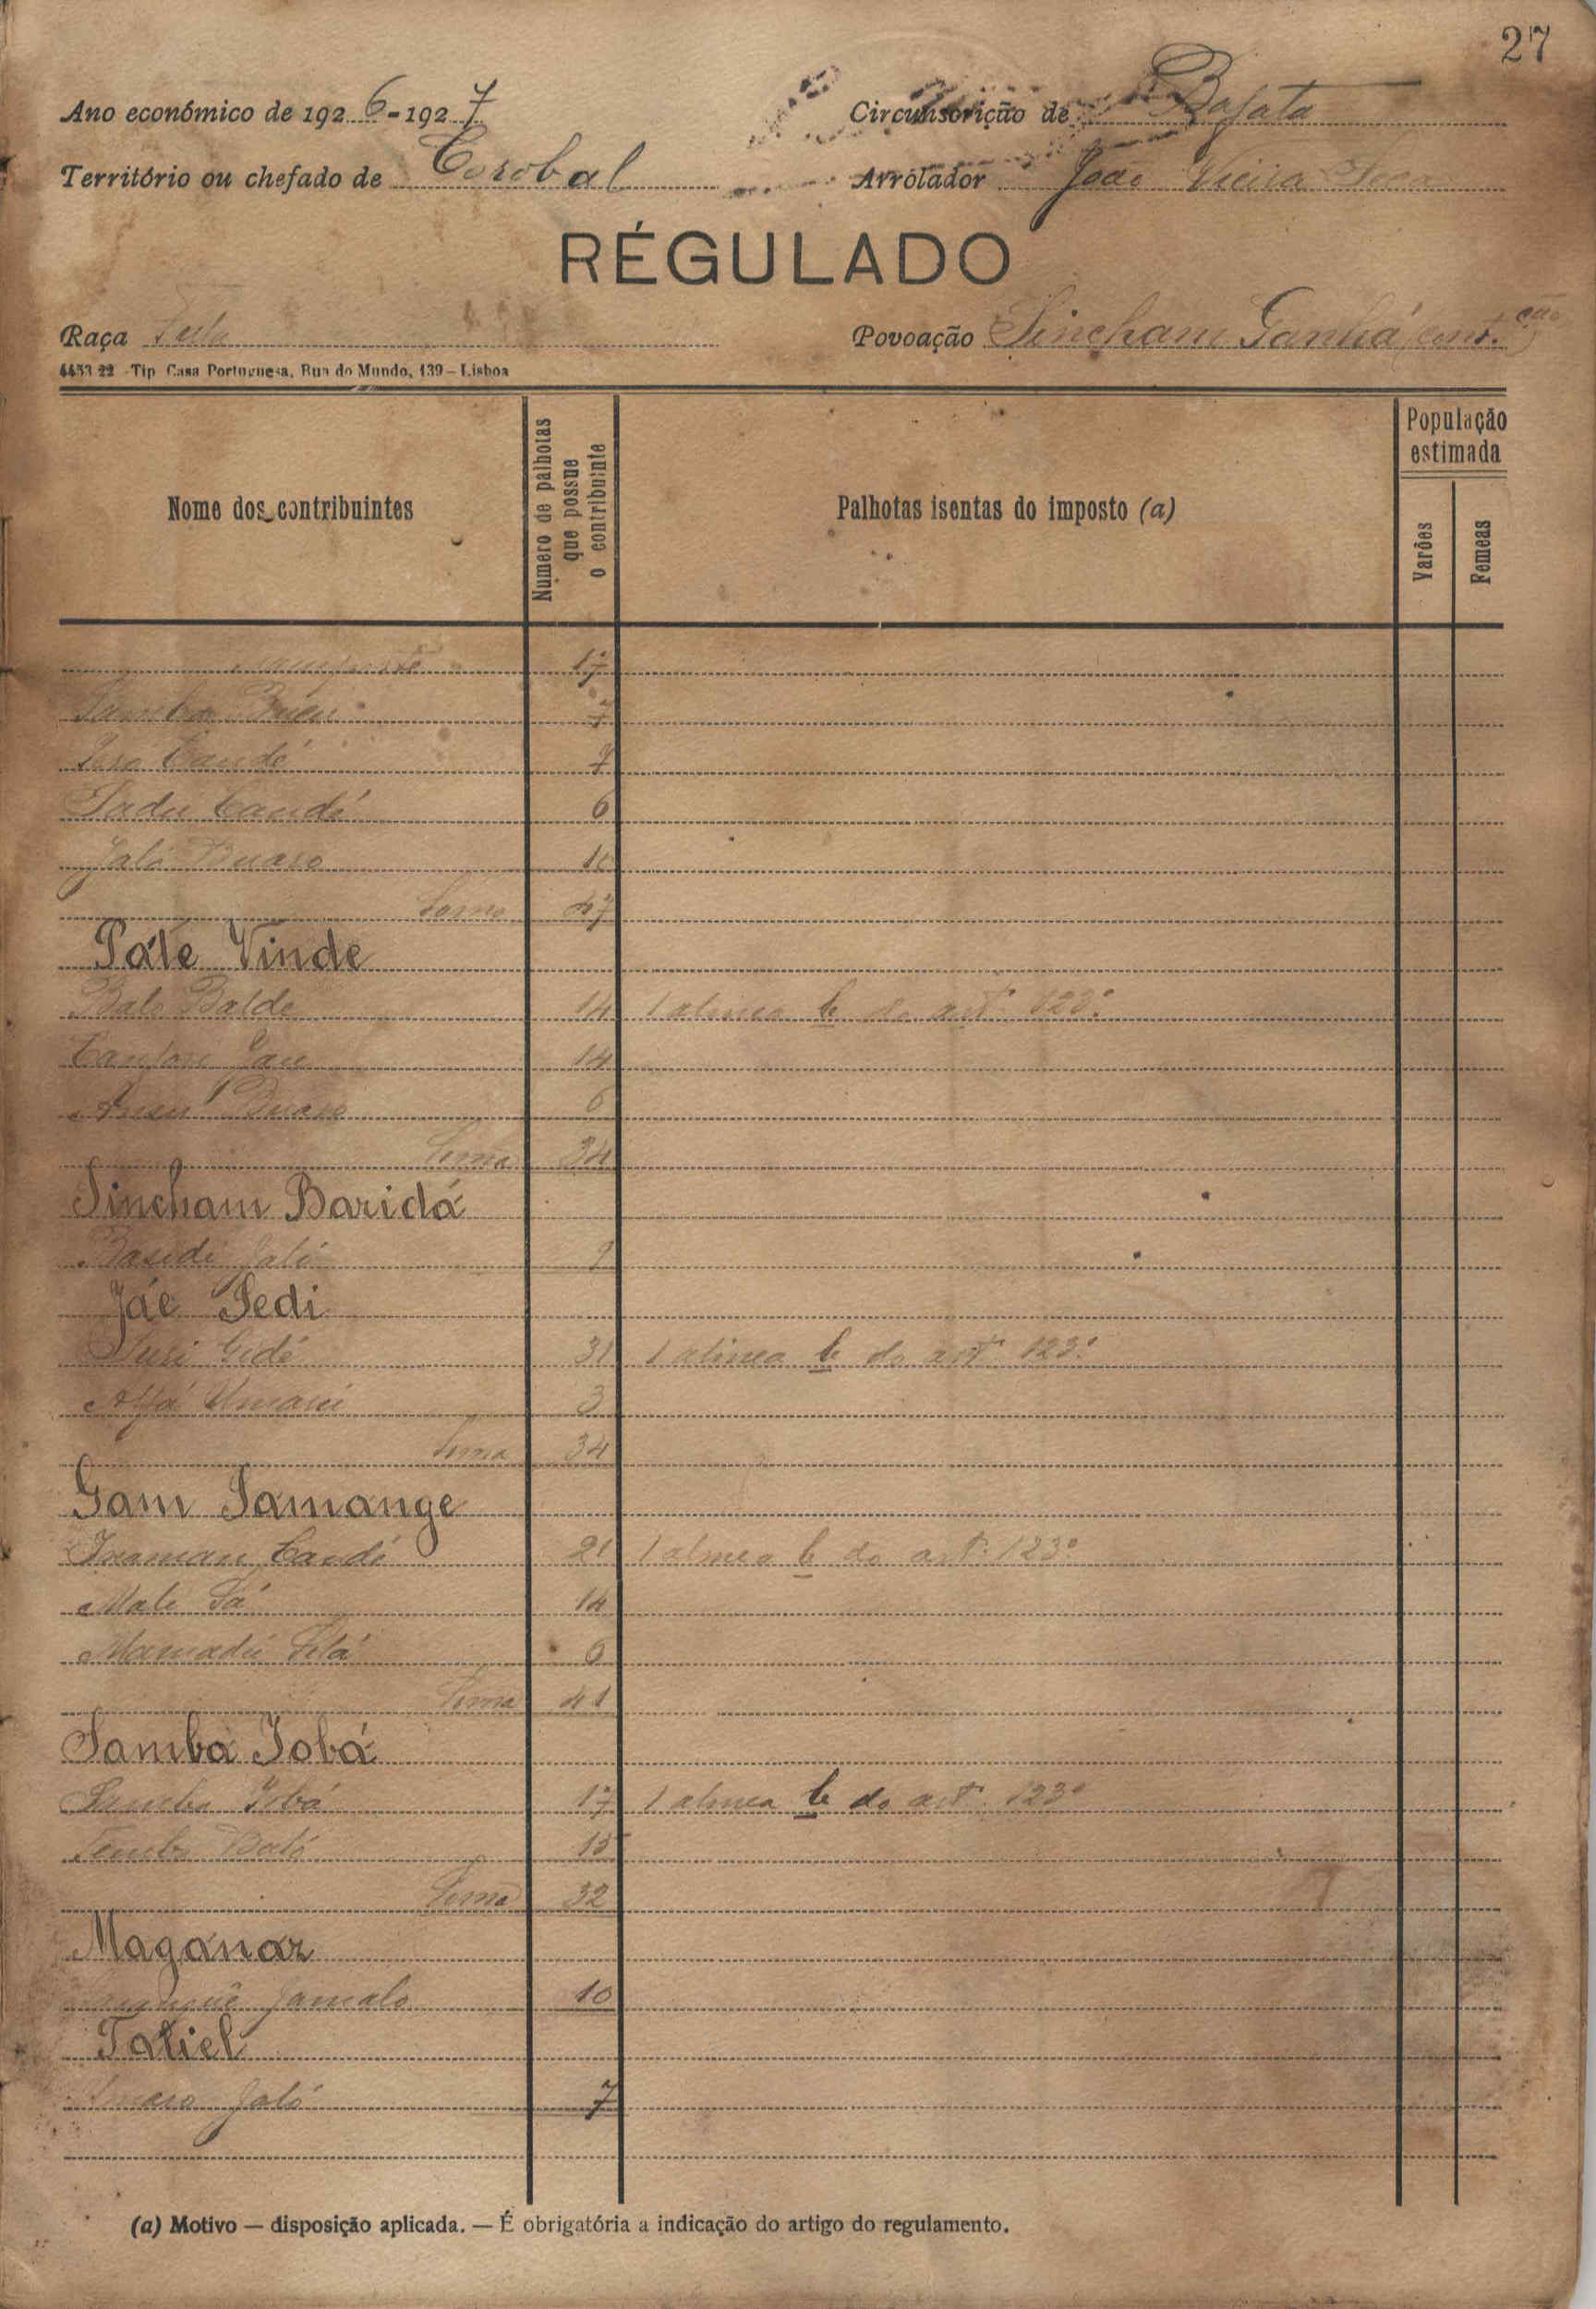 27
Ano económico de 1926-1927
Circunscrição de Bafata
Território ou chefado de Corobal
Arrolador João Vieira
RÉGULADO
Raça Fula
Povoação Sincham Ganhá, cont.ção
4453 22 - Tip Casa Portuguesa, Rua do Mundo, 139 - Lisboa
Nome dos contribuintes
Numero de palhotas que possue o contribuinte
Palhotas isentas do imposto (a)
População estimada
Varões
Femeas
17
Samba 7
Candé 7
Sadu Candé 6
Jaló Buaro 10
Soma 47
Páte Vinde
Balo Balde 14 1 alinea b do art.º 123.º
14
Buaro 6
Soma 34
Sincham Baridá
Jaló 9
Jáe Sedi
Gidé 31 1 alinea b do art.º 123.º
Alfá Umarú 3
Soma 34
Gam Samange
Candé 21 1 alinea b do art.º 123.º
Male Sá 14
Mamadú 6
Soma 41
Samba Jobá
Samba Jobá 17 1 alinea b do art.º 123.º
Baló 15
Soma 32
Maganar
Jamalo 10
Tatiel
Jaló 7
(a) Motivo — disposição aplicada. — É obrigatória a indicação do artigo do regulamento.